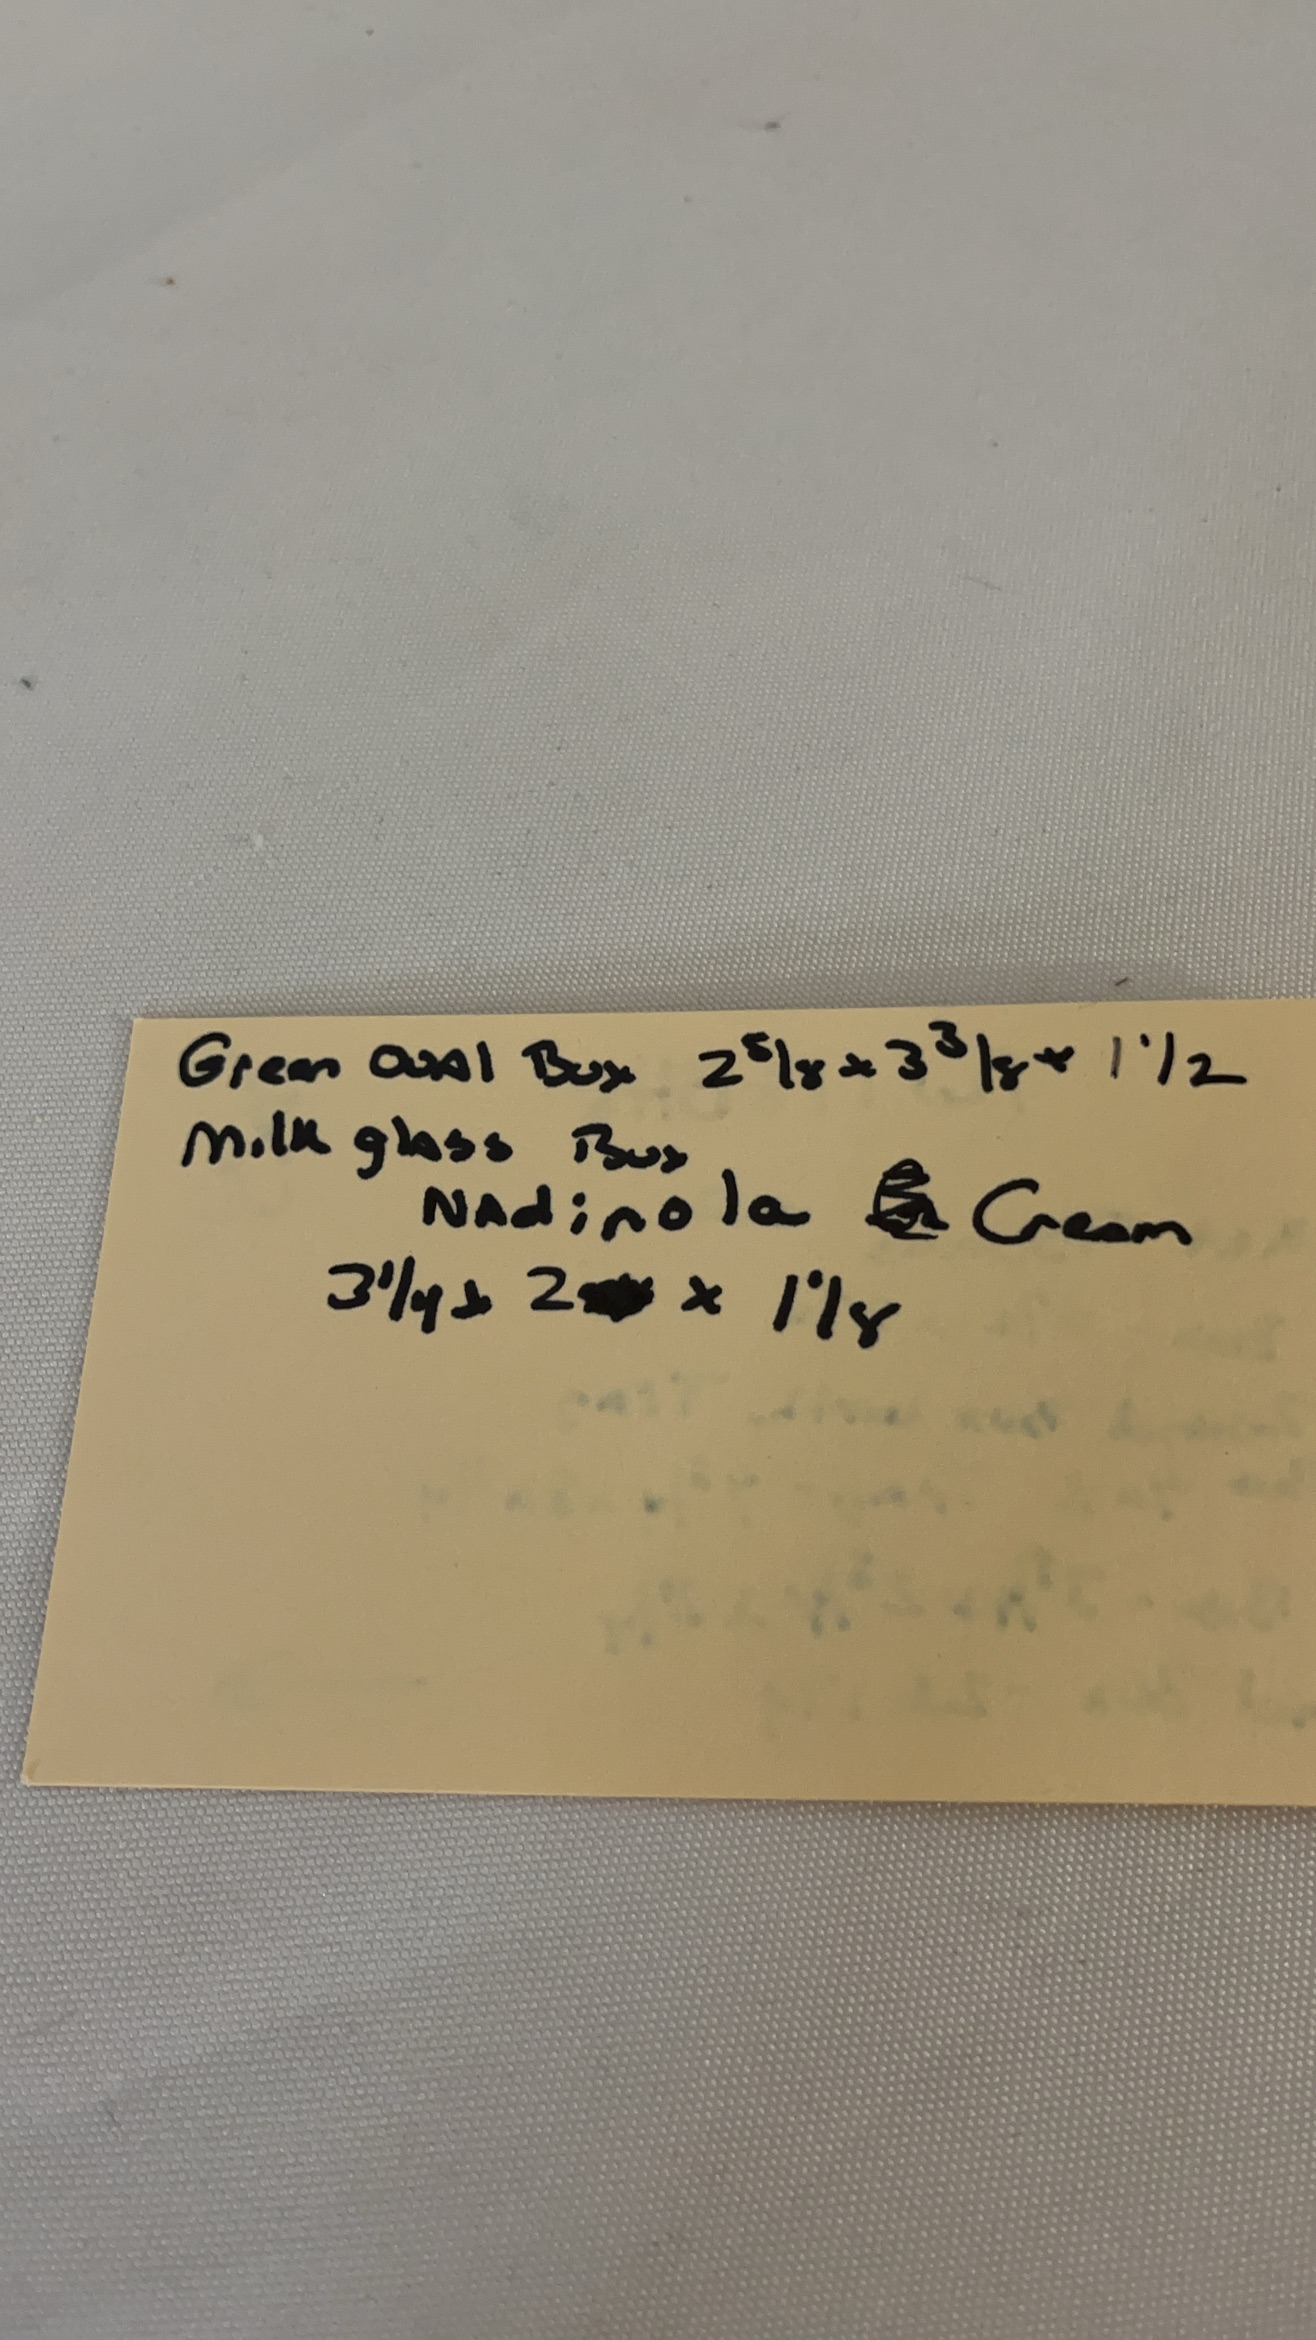 Green oval Box 2 5/8 x 3 3/8 x 1 1/2
Milk glass Box
NAdinola Cream
3 1/4 x 2 x 1 1/8